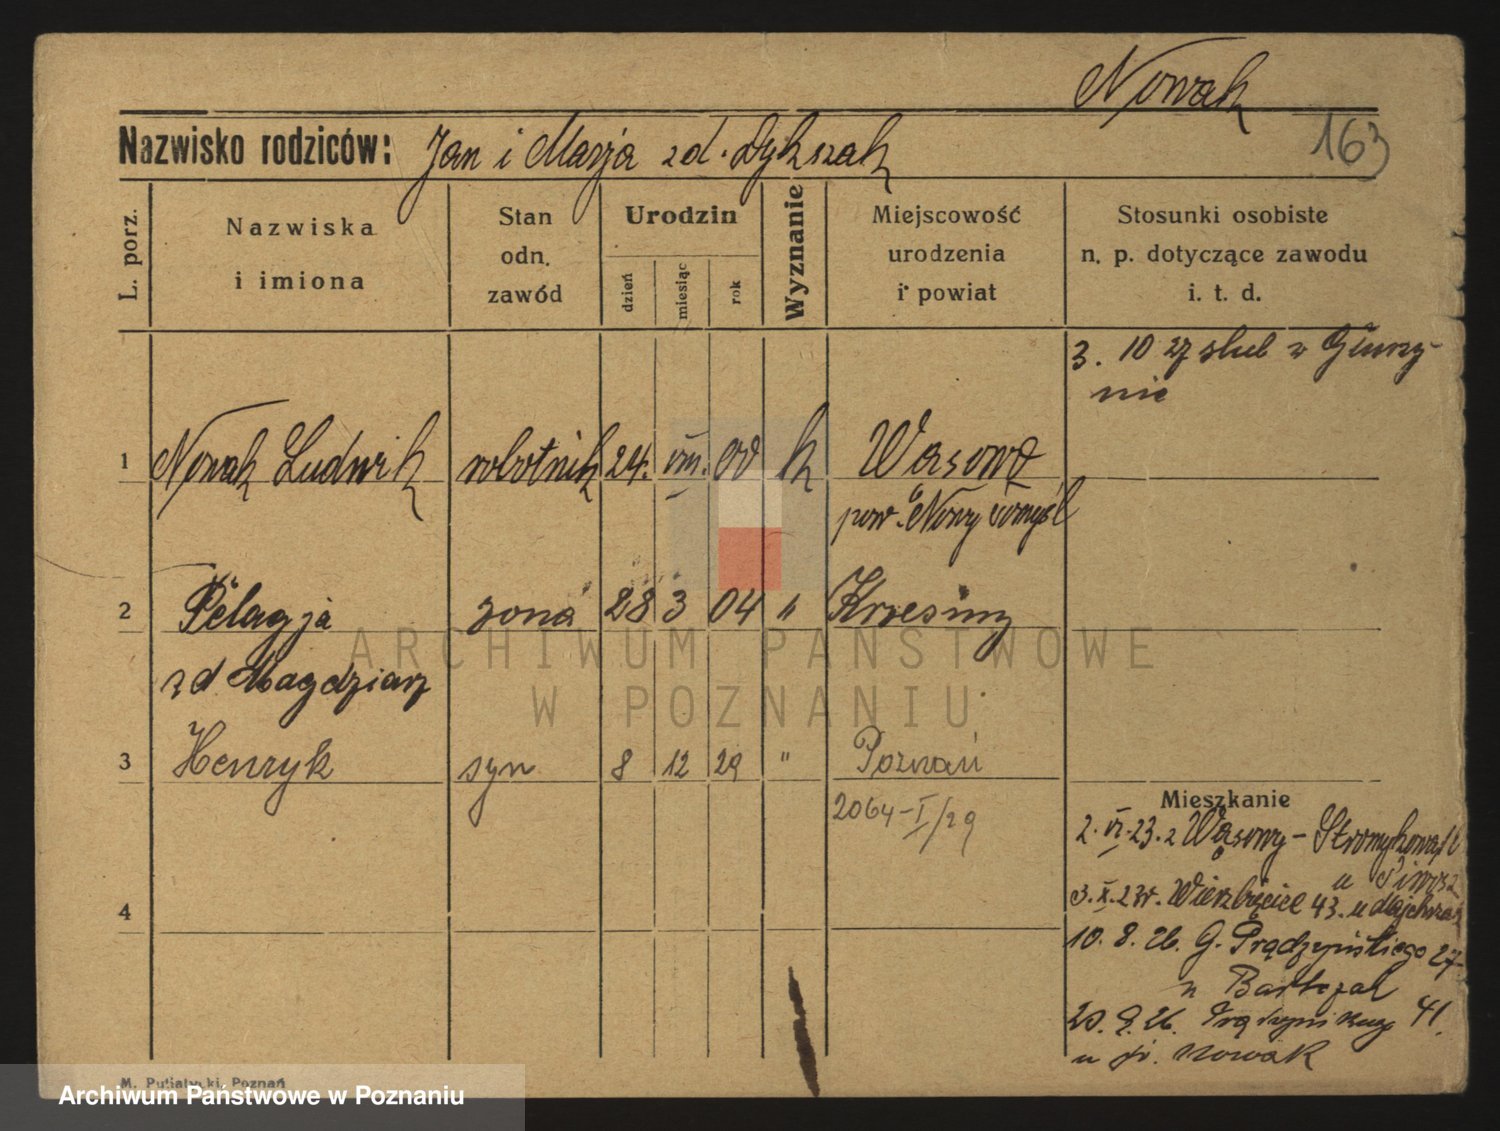 Nowak
163
Nazwisko rodziców: Jan i Marja zd. Dykszak
L. porz.
Nazwiska
i imiona
Stan
odn.
zawód
Urodzin
dzień
miesiąc
rok
Wyznanie
Miejscowość
urodzenia
i powiat
Stosunki osobiste
n. p. dotyczące zawodu
i. t. d.
3. 10 27 slub w Głuszy-
nie
1 Nowak Ludwik robotnik 24. VIII. 00 k Wąsowo
pow. Nowy Tomyśl
2 Pelagja żona 28 3 04 " Krzesiny
zd Magdziarz
3 Henryk syn 8 12 29 " Poznań
2064-I/29
Mieszkanie
2. VI. 23. z Wąsowy-
3. X. 23 r. Wierzbięcice 43. u
4
10. 8. 26. G. Prądzyńskiego 27
u Bartczak
20. 9. 26. 41.
u fr. Nowak
M. Putiatycki, Poznań
ARCHIWUM PAŃSTWOWE
W POZNANIU
Archiwum Państwowe w Poznaniu